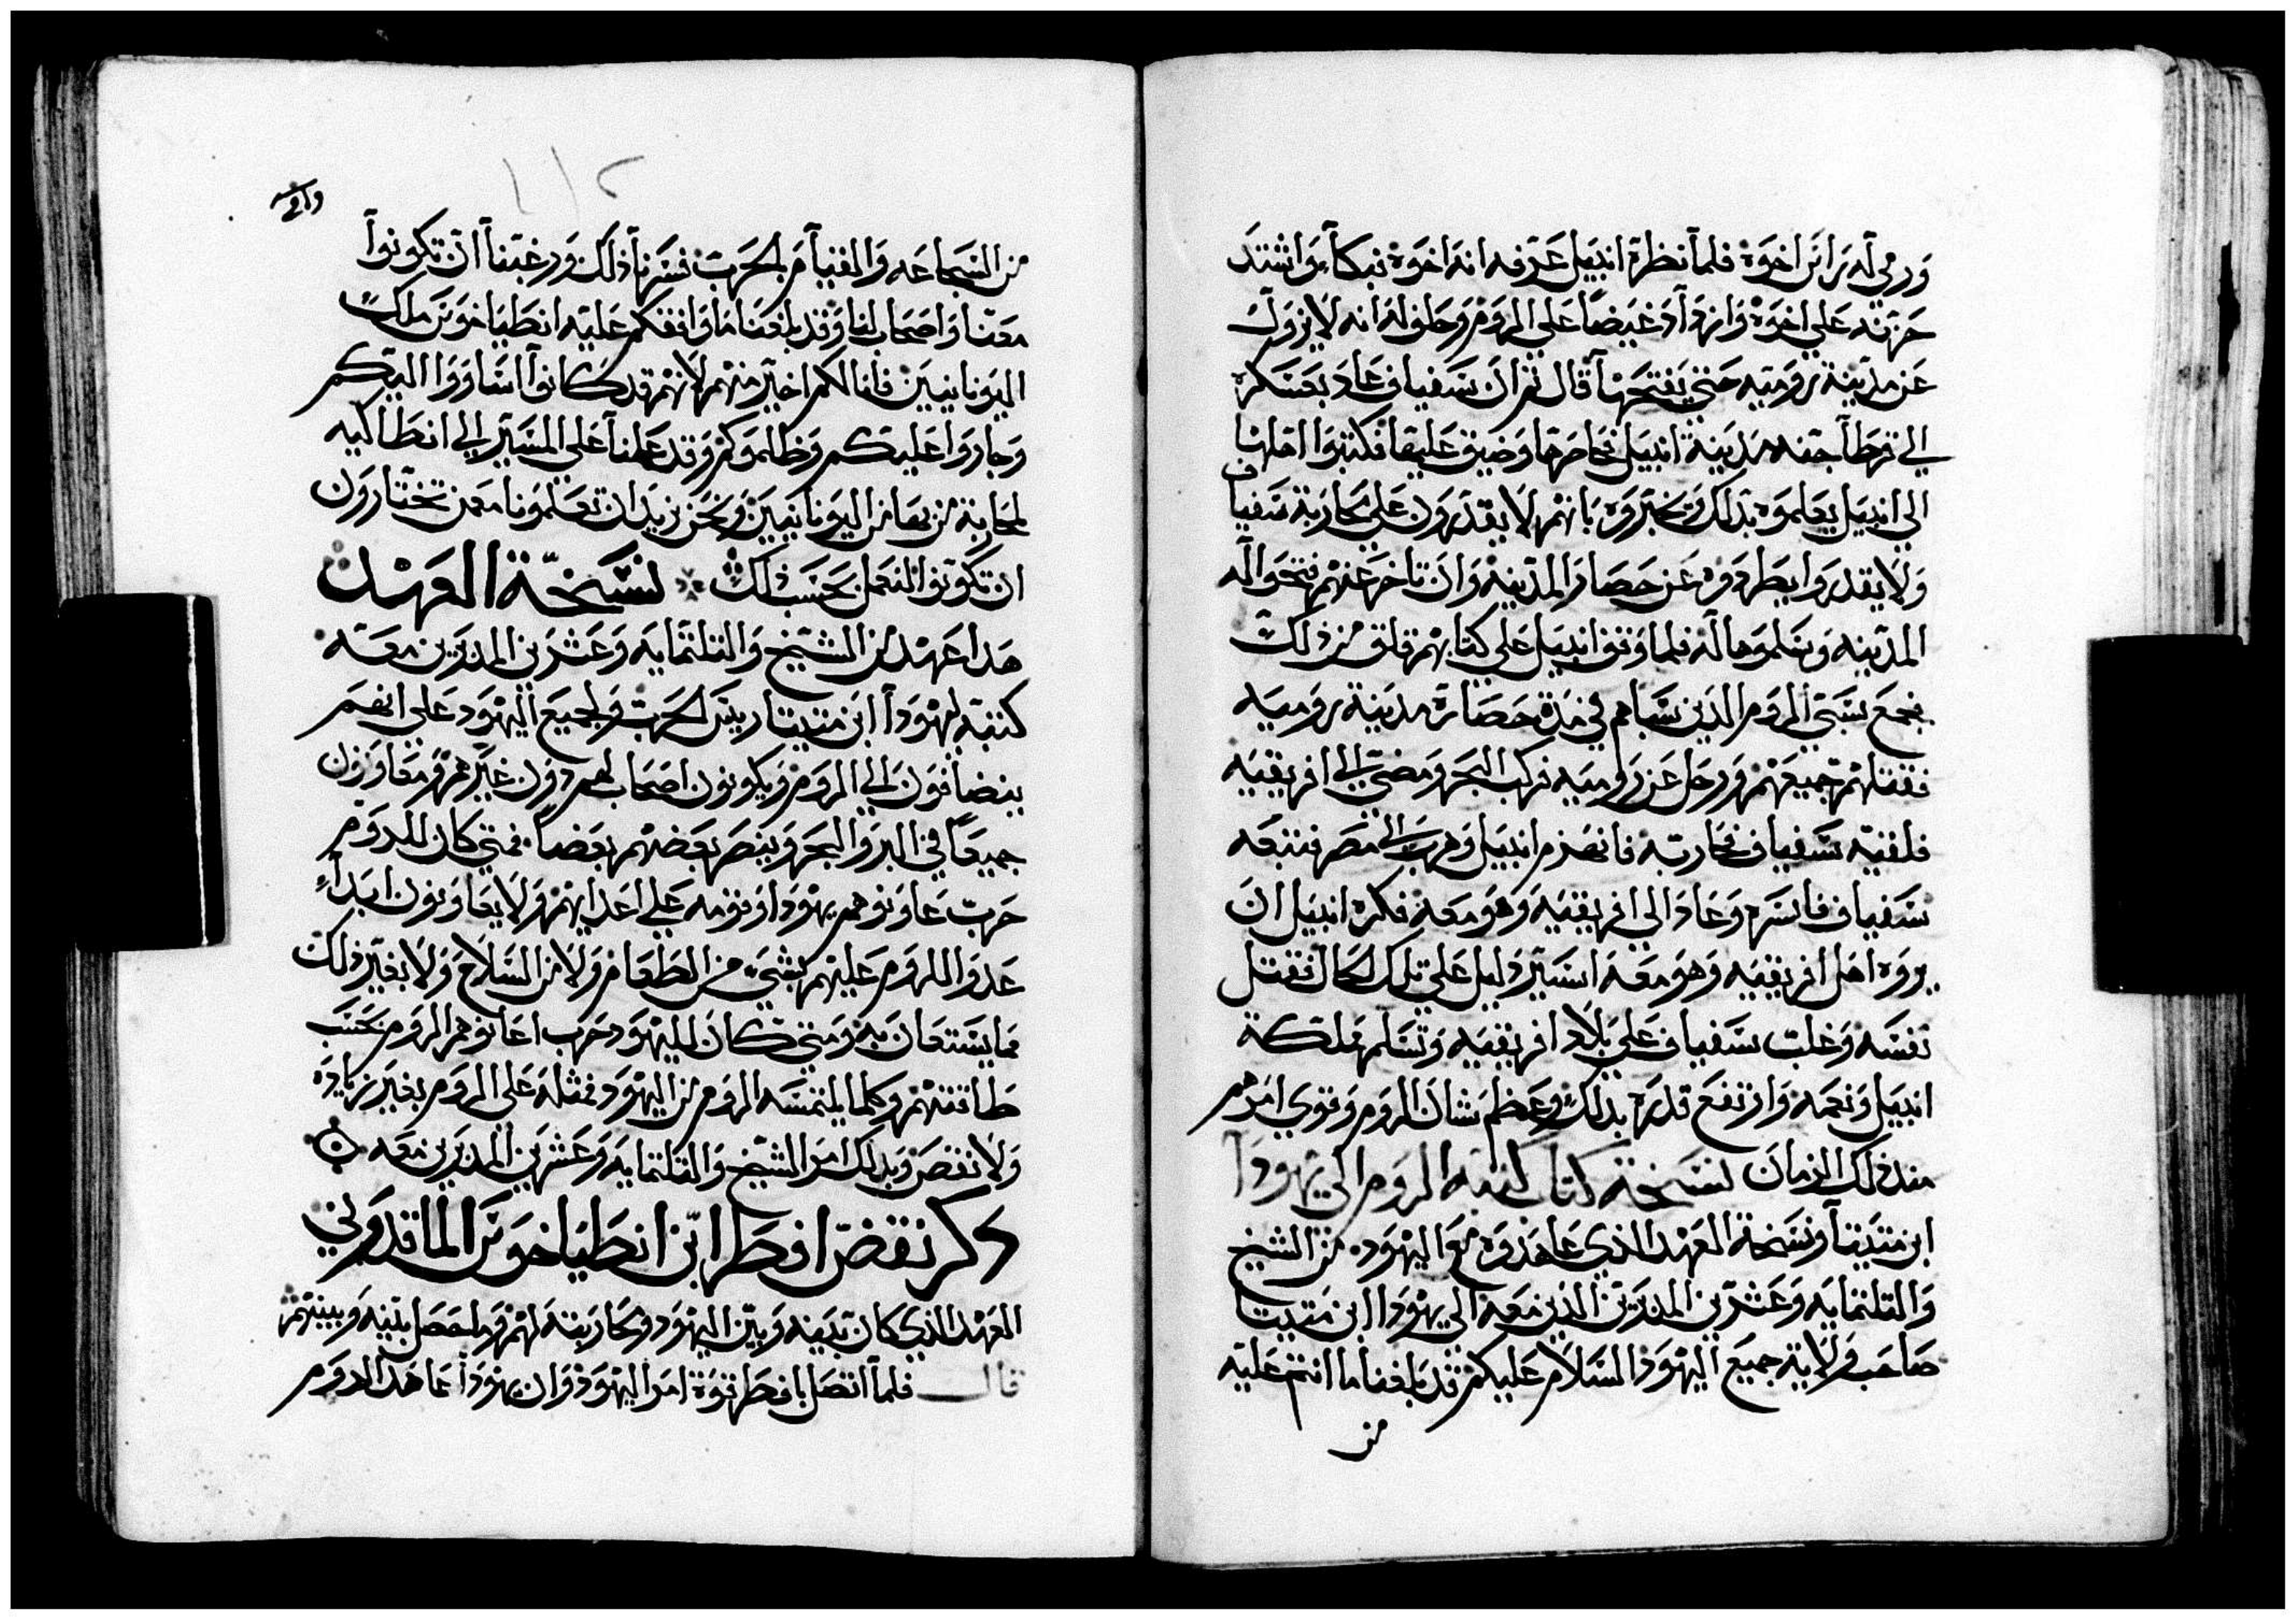 ورمي له براس اخوه فلما نظره انبيل عرفه انه اخوه فبكا واشتد
حزنه علي اخوه وازداد غيضاً علي الروم وحلف له انه لا يزول
عن مدينة روميه حتي يفتحها قال ثم ان سفياف عاد بعسكره
الي قرطاجنه مدينة انبيل فحاصرها وضيق عليها فكتبوا اهلها
الي انبيل يعلموه بذلك ويخبروه بانهم لا يقدرون علي محاربة سفياف
ولا يقدروا يطردوه عن حصار المدينه وان تاخر عنهم فتحوا له
المدينه وسلموها له فلما وقف انبيل علي كتابهم قلق من ذلك
فجمع سبي الروم الذين سباهم في مدة حصاره مدينة روميه
فقتلهم جميعهم ورحل عن روميه فركب البحر ومضي الي افريقيه
فلقيه سفياف فحاربه فانهزم انبيل وهرب الي مصر فتبعه
سفياف فاسره وعاد الي افريقيه وهو معه فكره انبيل ان
يروه اهل افريقيه وهو معه اسير دليل علي تلك الحال فقتل
نفسه وغلب سفياف علي بلاد افريقيه وتسلم مملكة
انبيل ونعمه وارتفع قدره بذلك وعظم شان الروم وقوي امرهم
منذ ذلك الزمان نسخة كتاب كتبه الروم الي يهودا
ابن متتيا ونسخة العهد الذي عاهدوه مع اليهود من الشيخ
والتلتمايه وعشرين المدبرين الذين معه الي يهودا ابن متيتا
صاحب ولاية جميع اليهود السلام عليكم قد بلغنا ما انتم عليه
من
من الشجاعه والقيام بالحرب فسرنا ذلك ورغبنا ان تكونوا
معنا واصحاب لنا وقد بلغنا ما وافقكم عليه انطياخوس ملك
اليونانيين فانا لكم اخير منهم لانهم قد كانوا اساووا اليكم
وجاروا عليكم وظلموكم وقد عملنا علي المسير الي انطاكيه
لمحاربة من بها من اليونانيين ونحن نريد ان تعلمونا مع من تختارون
ان تكونوا لنعمل بحسب ذلك نسخة العهد
هدا عهد من الشيخ والتلتمايه وعشرين المدبرين معه
كتبه ليهودا ابن متيتا رييس الحرب ولجميع اليهود علي انهم
ينضافون الي الروم ويكونون اصحاب لهم دون غيرهم ومعاونون
جميعاً في البر والبحر وينصر بعضهم بعضاً فمتي كان للروم
حرب عاونوهم يهودا وقومه علي اعدايهم ولا يعاونون ابداً
عدو الروم عليهم بشي من الطعام ولا من السلاح ولا بغير ذلك
مما يستعان به ومتي كان لليهود حرب اعانوهم الروم بحسب
طاقتهم وكلما يلتمسه الروم من اليهود فمثله علي الروم بغير زياده
ولا نقص وبذلك امر الشيخ والتلتمايه وعشرين المدبرين معه
دكر نقض افطر ابن انطياخوس الماقدوني
العهد الذي كان بينه وبين اليهود ومحاربته لهم وما حصل بينه وبينهم
قال فلما اتصل بافطر قوة امر اليهود وان يهودا عاهد الروم